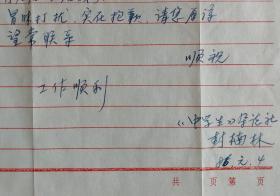 冒昧打扰,实在抱歉,请您原谅
望常联系
顺祝
工作顺利
《中学生》杂志社
封楠林
86.元.4
共 页 第 页